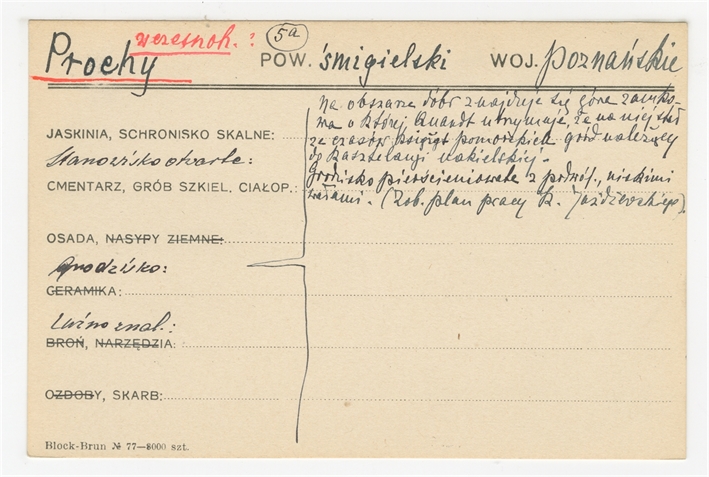 wczesnoh. ?
5a
Prochy POW. śmigielski WOJ. poznańskie
Na obszarze dóbr znajduje się góra zamko-
wa o której Knardt utrzymaje, że na niej stał
za czasów książąt pomorskich gród należący
do Kasztelanji nakielskiej.
Grodzisko pierścieniowate z podwój., niskimi
wałami. (Zob. plan pracy K. Jażdżewskiego).
JASKINIA, SCHRONISKO SKALNE:
Stanowisko otwarte:
CMENTARZ, GRÓB SZKIEL. CIAŁOP.:
OSADA, NASYPY ZIEMNE:
Grodzisko:
CERAMIKA:
Luźno znal.:
BROŃ, NARZĘDZIA:
OZDOBY, SKARB:
Block-Brun № 77—8000 szt.